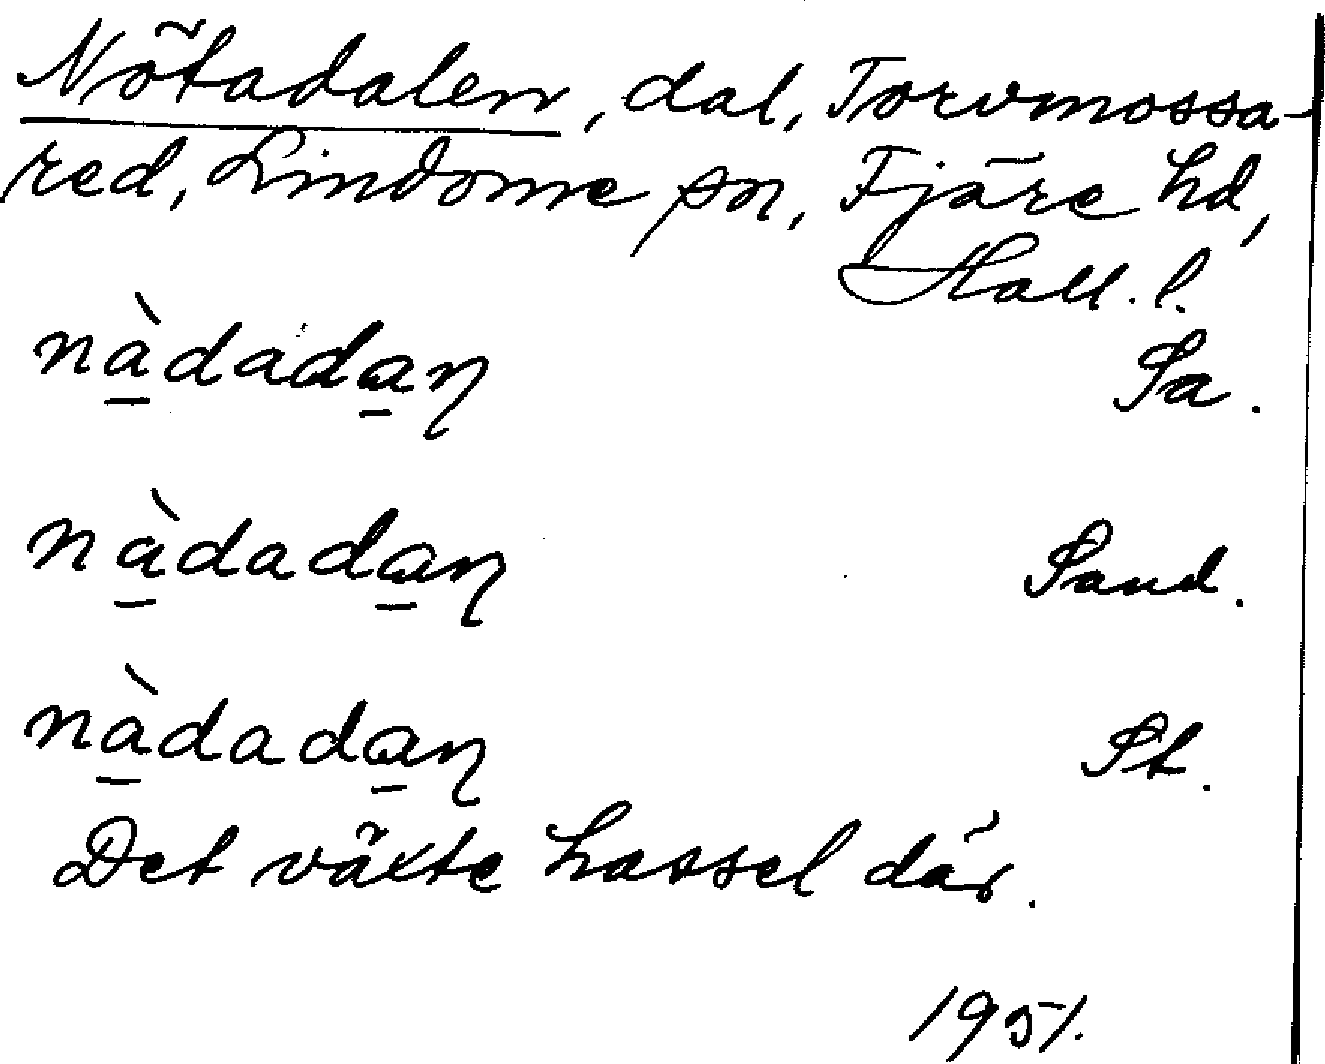 Nötadalen, dal, Torvmossa-
red, Lindome sn, Fjäre hd,
Hall. l.
nà̱dada̱ꞑ Sa.
nà̱dada̱ꞑ Sand.
nà̱dada̱ꞑ St.
Det växte hassel där.
1951.